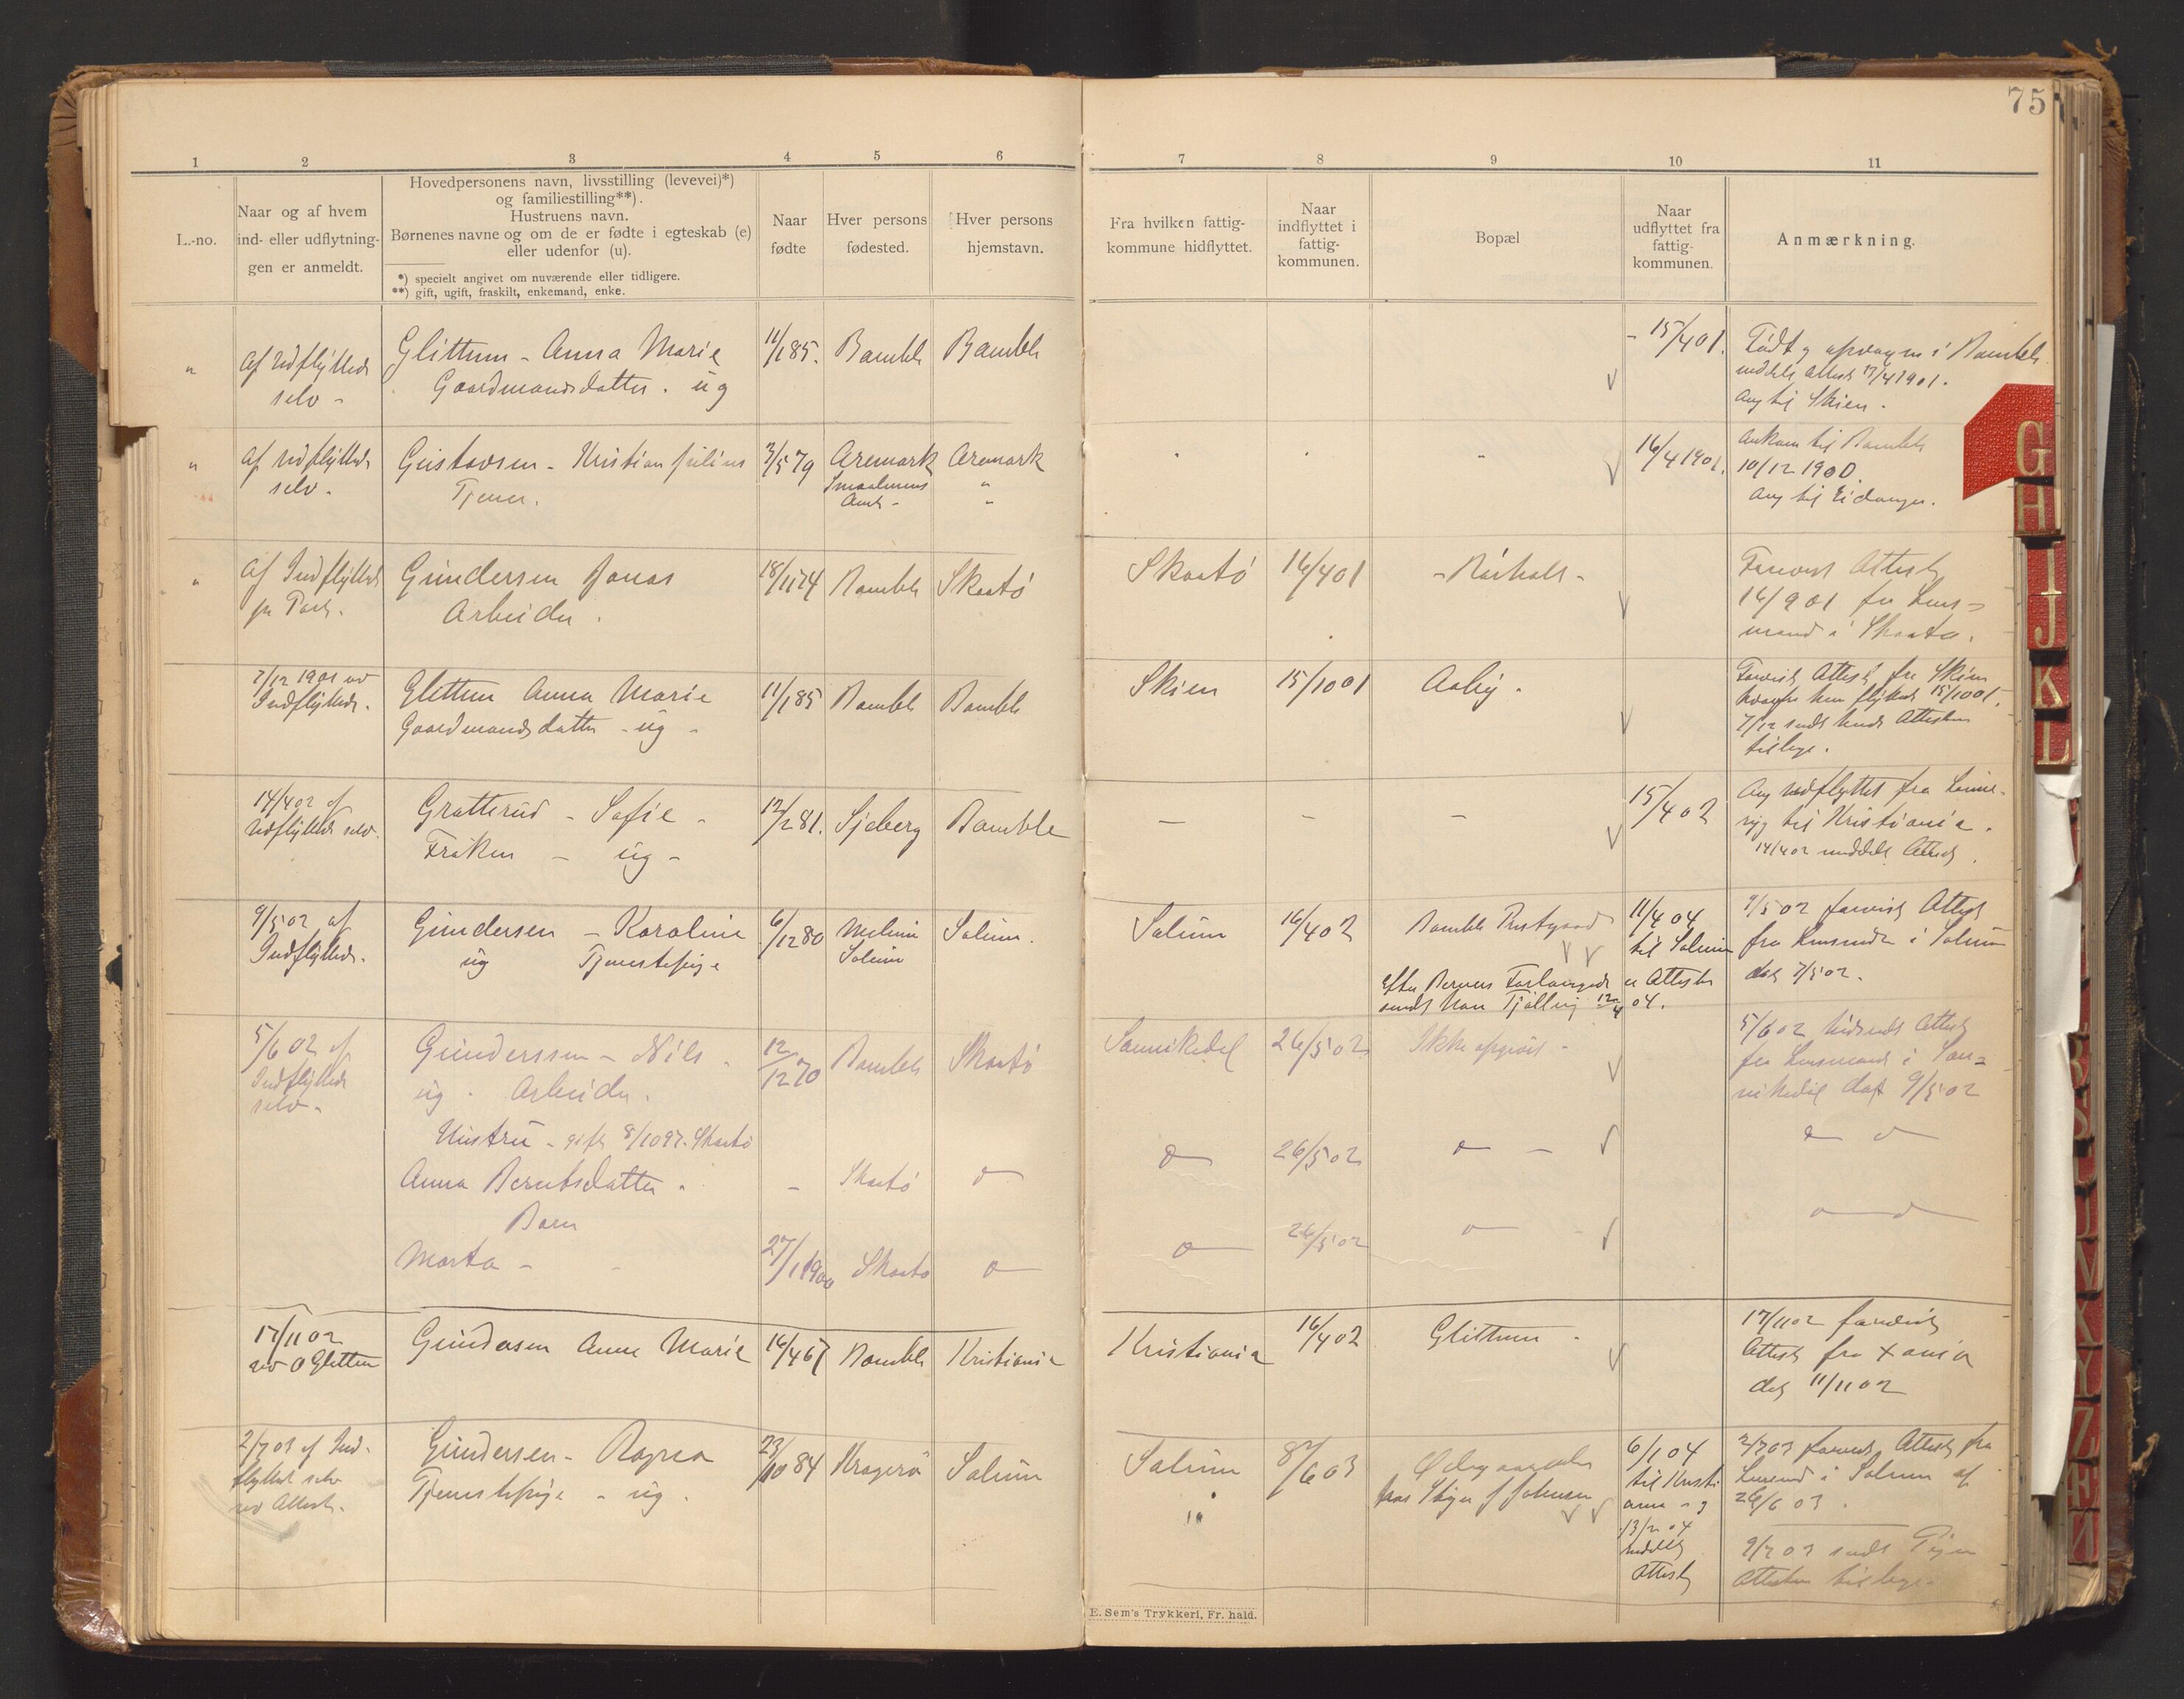 75
1 2 3 4 5 6 7 8 9 10 11
L.-no.
Naar og af hvem
ind- eller udflytnin-
gen er anmeldt.
Hovedpersonens navn, livsstilling (levevei)*)
og familiestilling**).
Hustruens navn.
Børnenes navne og om de er fødte i egteskab (e)
eller udenfor (u).
*) specielt angivet om nuværende eller tidligere.
**) gift, ugift, fraskilt, enkemand, enke.
Naar
fødte
Hver persons
fødested.
Hver persons
hjemstavn.
Fra hvilken fattig-
kommune hidflyttet.
Naar
indflyttet i
fattig-
kommunen.
Bopæl
Naar
udflyttet fra
fattig-
kommunen.
Anmærkning.
" af Udflyttede
selv -
Glittum - Anna Marie
Gaardmandsdatter . ug
11/1 85. Bamble Bamble
- 15/4 01.
Født og i Bamble
meddelt Attest 13/4 1901.
Ang til Skien .
" af Udflyttede
selv -
Gustavsen - Kristian Julius
Tjener.
3/5 79 Aremark
Smaalenenes
Amt -
Aremark
"
"
16/4 1901.
Ankom til Bamble
10/12 1900.
Ang til Eidanger.
" af Indflyttede
pr Post.
Gundersen Jonas
Arbeider .
18/11 74 Bamble Skaatö
Skaatö 16/4 01 - Rørholt -
Forevist Attest
16/9 01 fra Lens-
mand i Skaatø.
7/12 1901 av
Indflyttede.
Glittum Anna Marie
Gaardmandsdatter - ug -
11/1 85 Bamble Bamble
Skien 15/10 01 Aaby .
Forevist Attest fra Skien
hvorfra hun flyttede 15/10 01.
7/12 sendt hende Attesten
tilbage.
14/4 02 af
Udflyttede selv.
Gratterud - Sofie -
Frøken - ug -
12/2 81. Sjeberg Bamble
- - -
15/4 02
Ang udflyttet fra
til Kristiania.
14/4 02 meddelt Attest .
9/5 02 af
Indflyttede.
Gundersen - Karoline
ug Tjenestepige
6/12 80 Melum
Solum
Solum.
Solum 16/4 02 Bamble Prestgaard
11/4 04
til Solum
Efter Attesten
sendt 12/4 04.
9/5 02 forevist Attest
fra Lensmdn i Solum
dat 7/5 02.
5/6 02 af
Indflyttede
selv -
Gunderssen - Nils -
ug . Arbeider.
12/12 70 Bamble Skaatö
Sannikedal 26/5 02 Ikke opgivet -
5/6 02 Attest
fra Lensmand i San-
nikedal dat 9/5 02
Hustru - gift 8/10 97. Skaatö
Anna Berntsdatter .
- Skaatö do
do 26/5 02 do - do do
Barn
Marta - -
27/1 1900 Skaatø do
do 26/5 02 do - do do
17/11 02
av O Glittum
Gundersen Anne Marie
16/4 67 Bamble Kristiania
Kristiania 16/4 02 Glittum .
17/11 02 forevist
Attest fra Xania
dat 11/11 02
2/7 03 af Ind-
flyttet selv
ved Attest.
Gundersen - Ragna
Tjenestepige - ug .
23/10 84 Kragerö Solum
Solum
"
8/6 03
hos J Johnsen
6/1 04
til Kristi
ania - og
13/2 04
meddelt
Attest
2/7 03 forevist Attest fra
Lensmd i Solum af
26/6 03 .
9/7 03 sendt Pigen
Attesten tilbage
E. Sem's Trykkeri, Fr.hald.
G
H
I
J
K
L